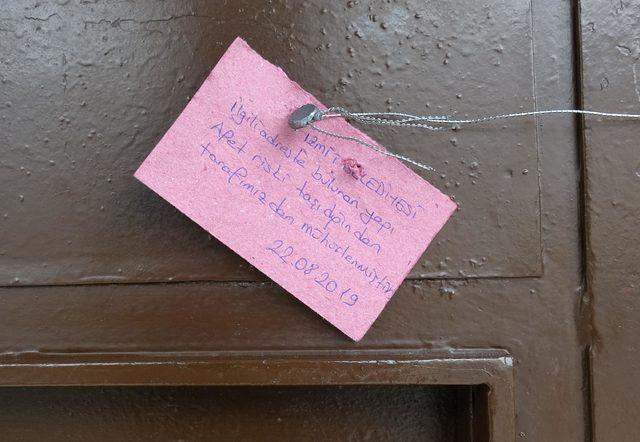 İZMİT BELEDİYESİ
İlgili adreste bulunan yapı
Afet riski taşıdığından
tarafımızdan mühürlenmiştir
22.08.2019